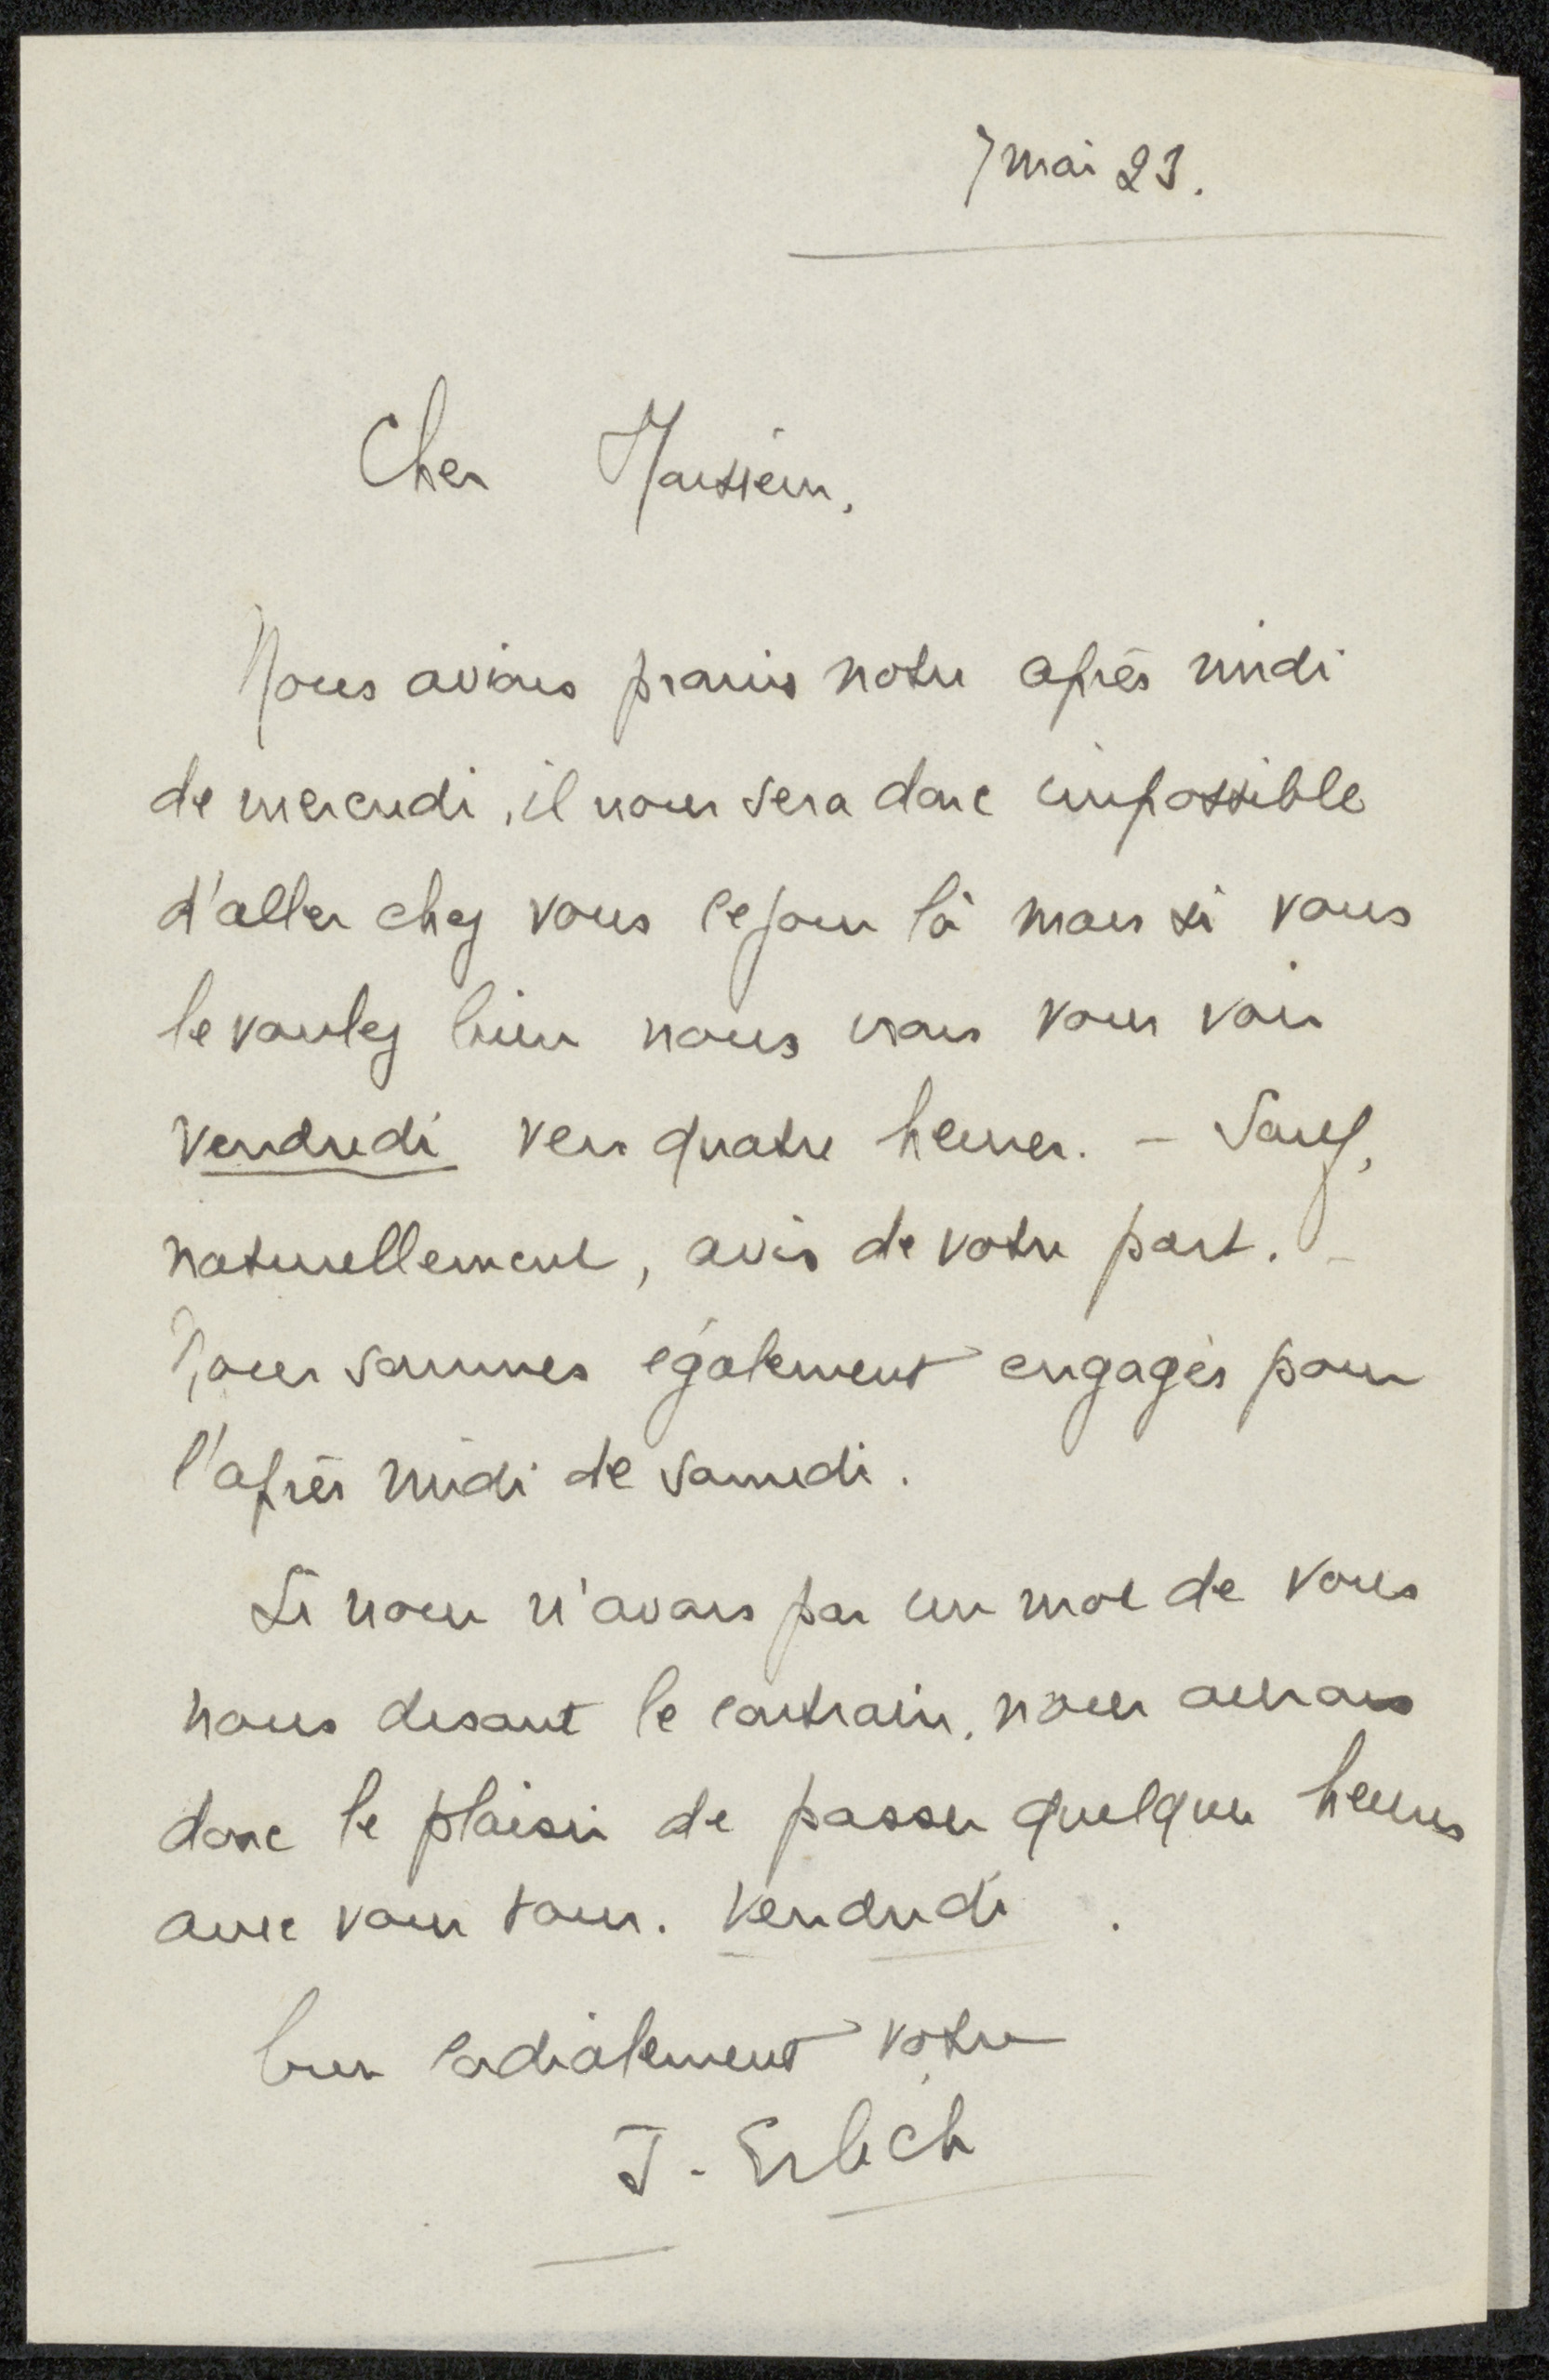 7 mai 23.
Cher Monsieur,
Nous avions promis notre après midi
de mercredi, il nous sera donc impossible
d'aller chez vous ce jour là mais si vous
le voulez bien nous irons vous voir
vendredi vers quatre heures. – Sauf,
naturellement, avis de votre part. –
Nous sommes également engagés pour
l'après midi de samedi.
Si nous n'avons pas un mot de vous
nous disant le contraire, nous aurons
donc le plaisir de passer quelques heures
avec vous tous. Vendredi.
bien cordialement votre
J. Erlich